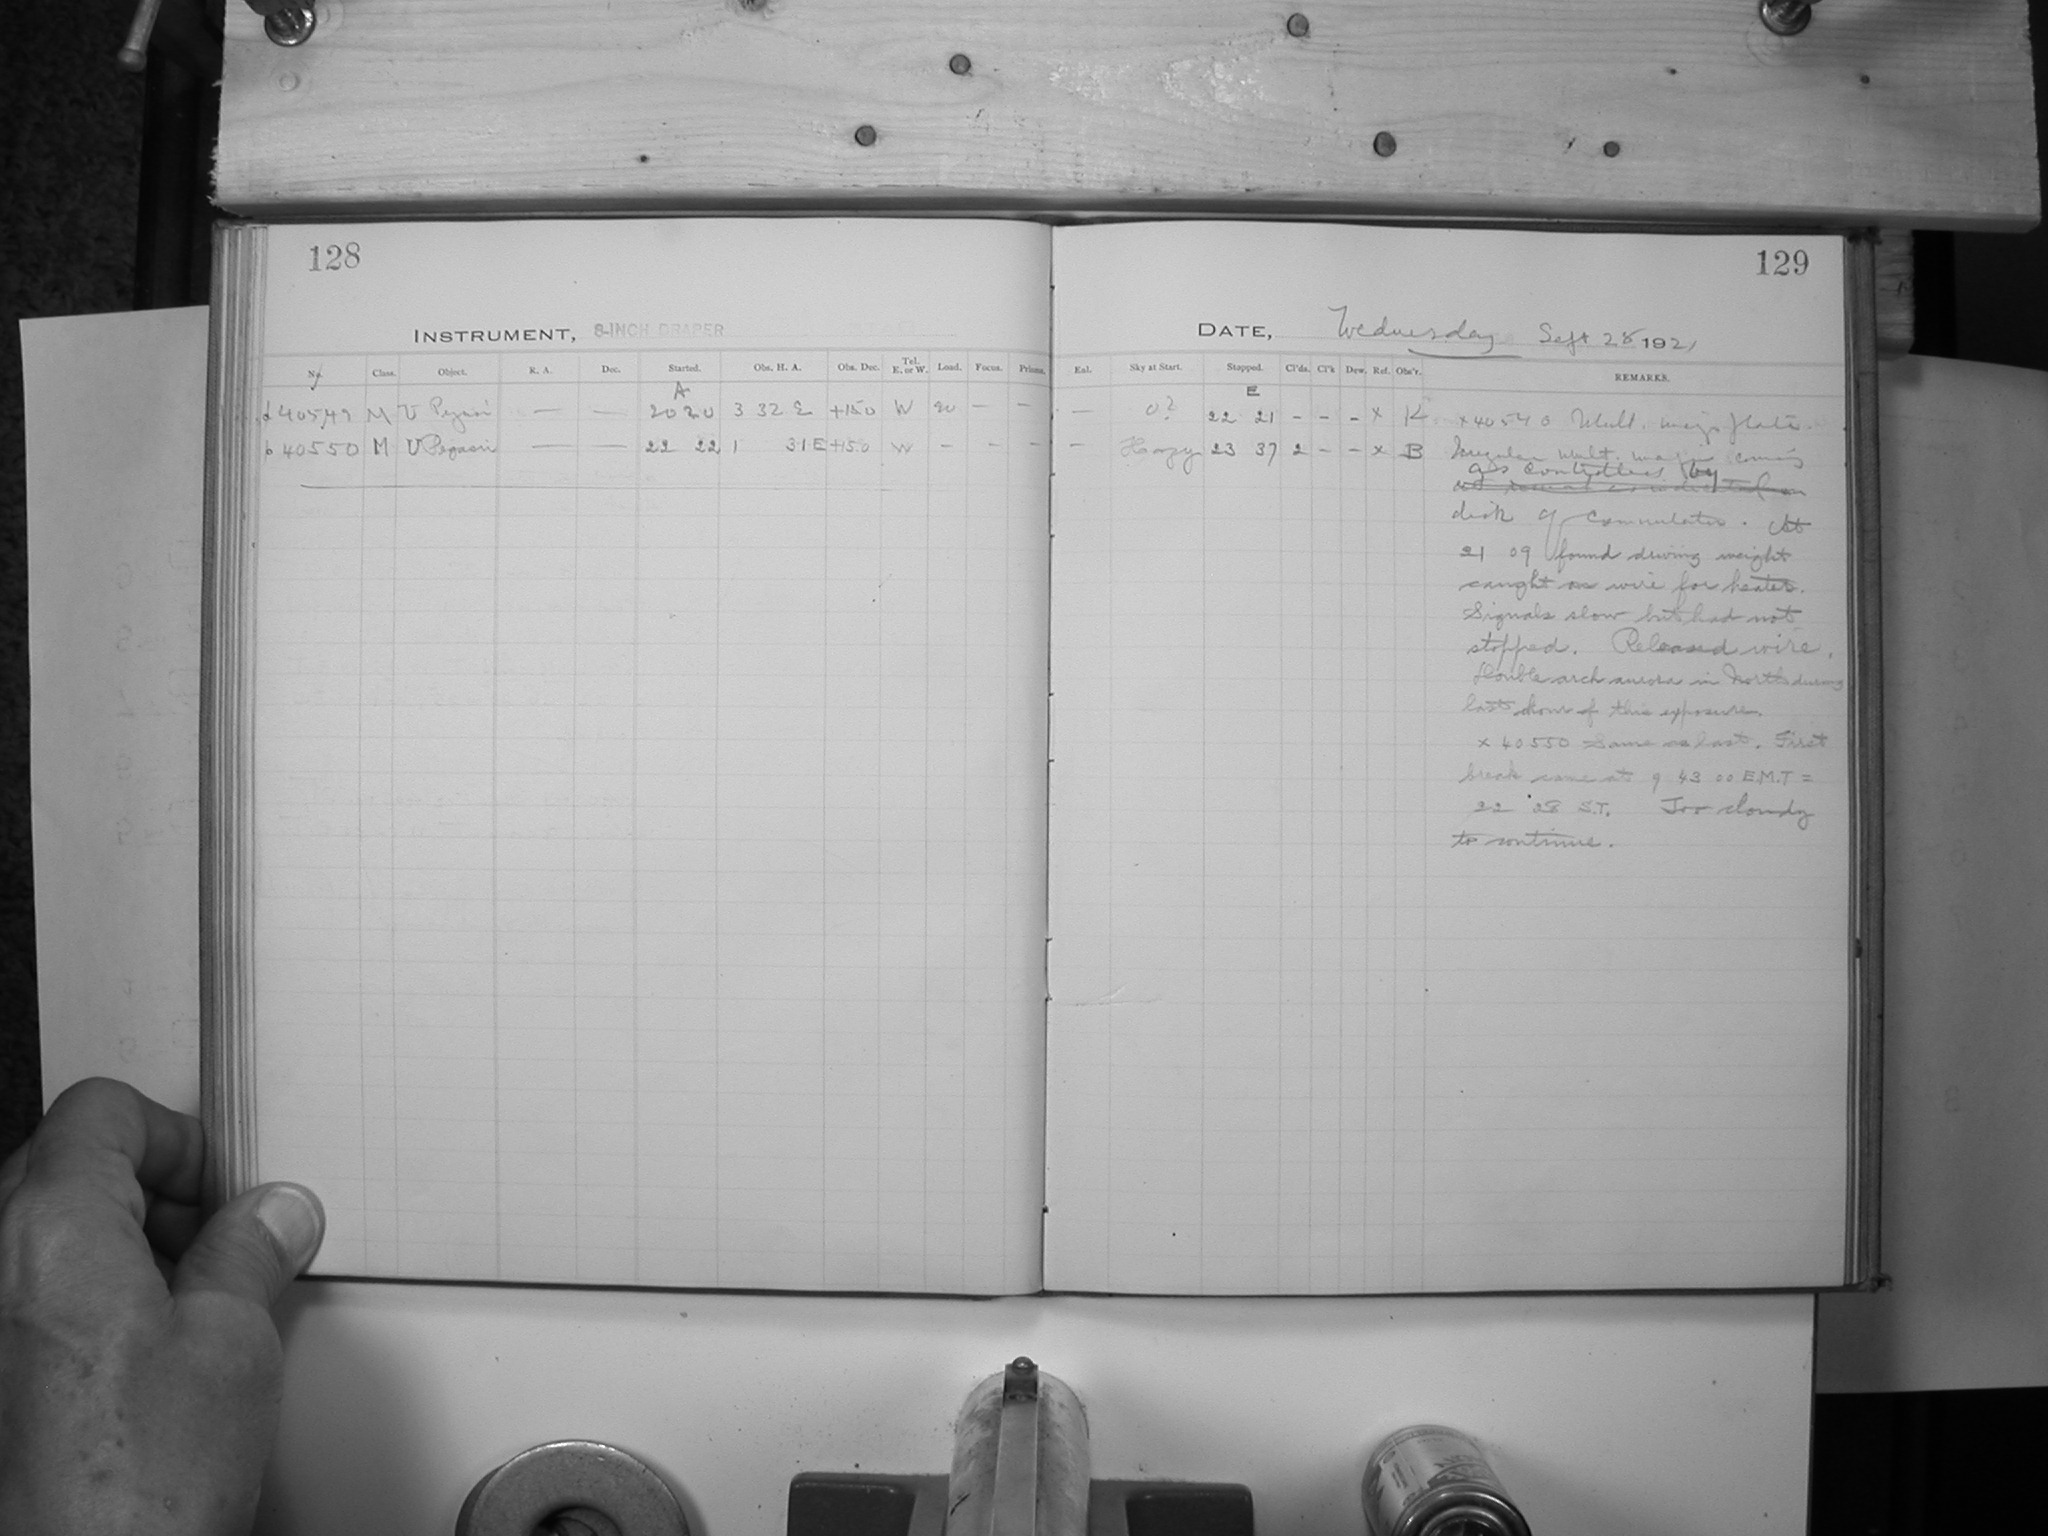 128
INSTRUMENT, 8-INCH DRAPER
No. Class. Object. R. A. Dec. Started. Obs. H. A. Obs. Dec. Tel. E. or W. Load. Focus. Prisms.
A
40549 M U Pegasi — — 20 20 3 32 E +15.0 W 20 — —
b 40550 M U Pegasi — — 22 22 1 31 E +15.0 W — — —
129
DATE, Wednesday Sept 28 1921
Enl. Sky at Start. Stopped. Cl'ds. Cl'k Dew. Ref. Obs'r. REMARKS.
E
— 0? 22 21 - - - x K
— Hazy 23 37 2 - - x B Irregular mult. coming
as controlled by
disk of commutator. At
21 09 found driving weight
caught on wire for heater.
Signals slow but had not
stopped. Released wire.
Double arch aurora in North during
last hour of this exposure.
x 40550 Same as last. First
break came at 9 43 00 E.M.T =
22 28 S.T. Too cloudy
to continue.